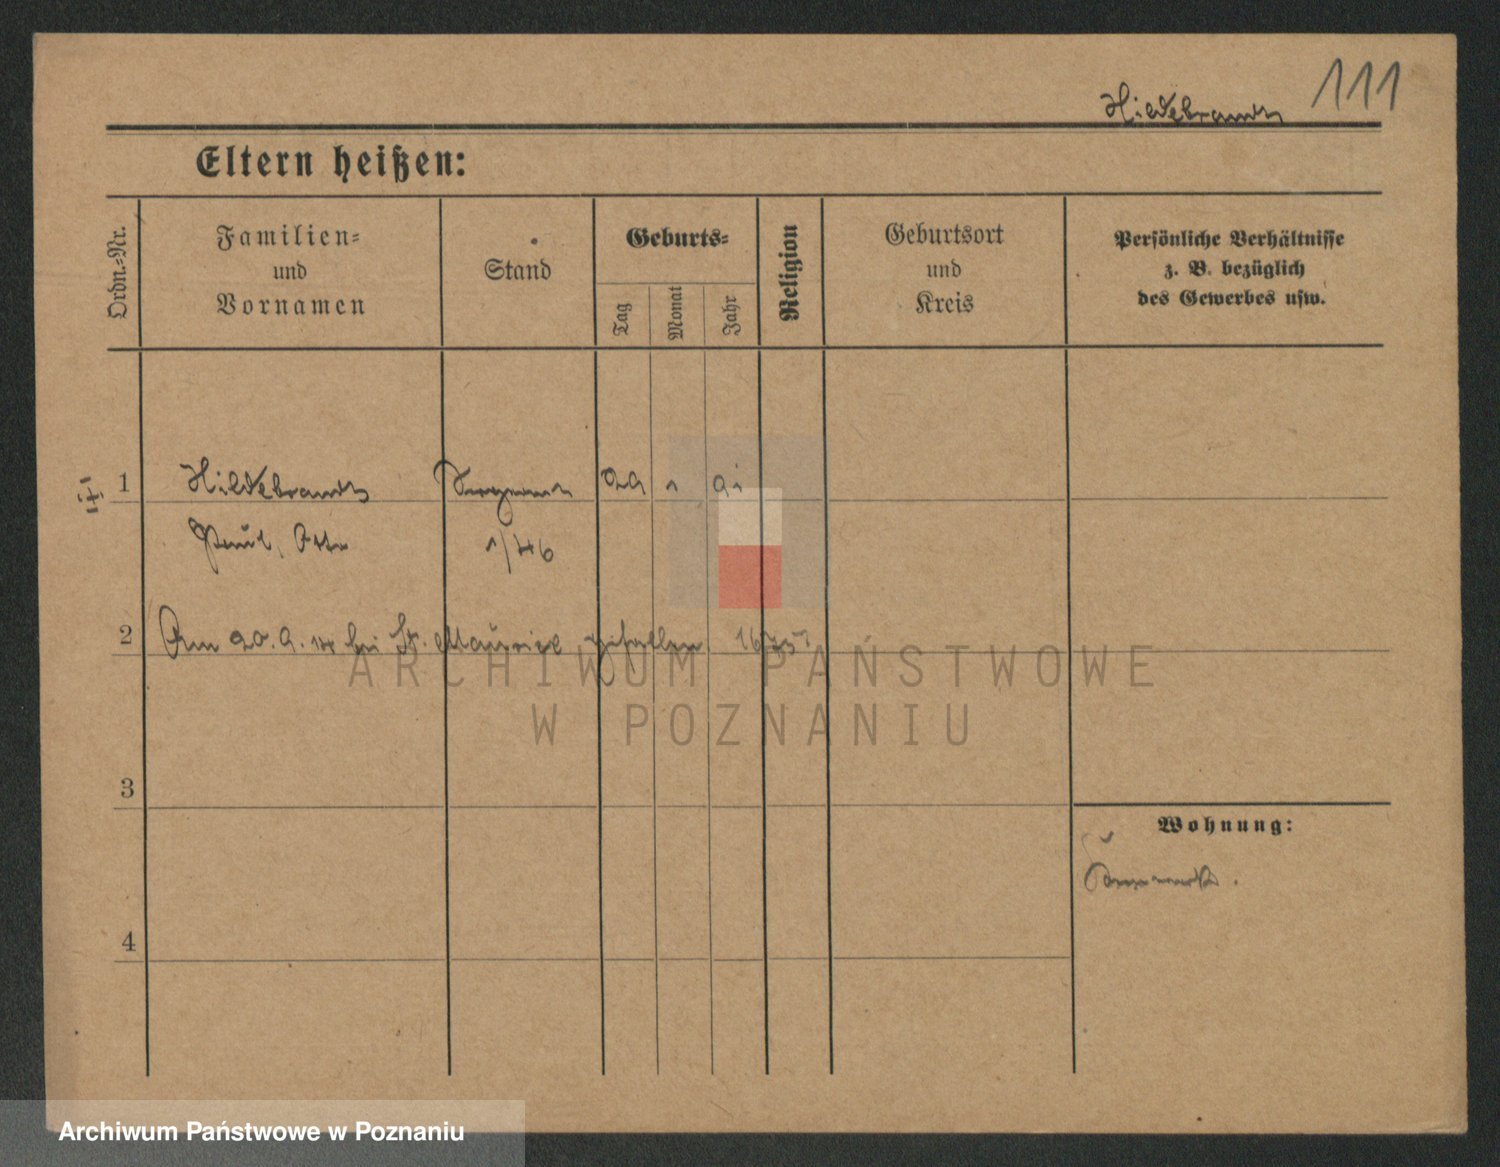 Hildebrandt 111
Eltern heißen:
Ordn.-Nr.
Familien-
und
Vornamen
Stand
Geburts-
Tag
Monat
Jahr
Religion
Geburtsort
und
Kreis
Persönliche Verhältnisse
z. B. bezüglich
des Gewerbes usw.
1 Hildebrandt Sergeant 29 1 91
Paul, Otto 1/46
2 Am 20. 9. 14 bei St. Maurice gefallen
3
Wohnung:
4
ARCHIWUM PAŃSTWOWE
W POZNANIU
Archiwum Państwowe w Poznaniu